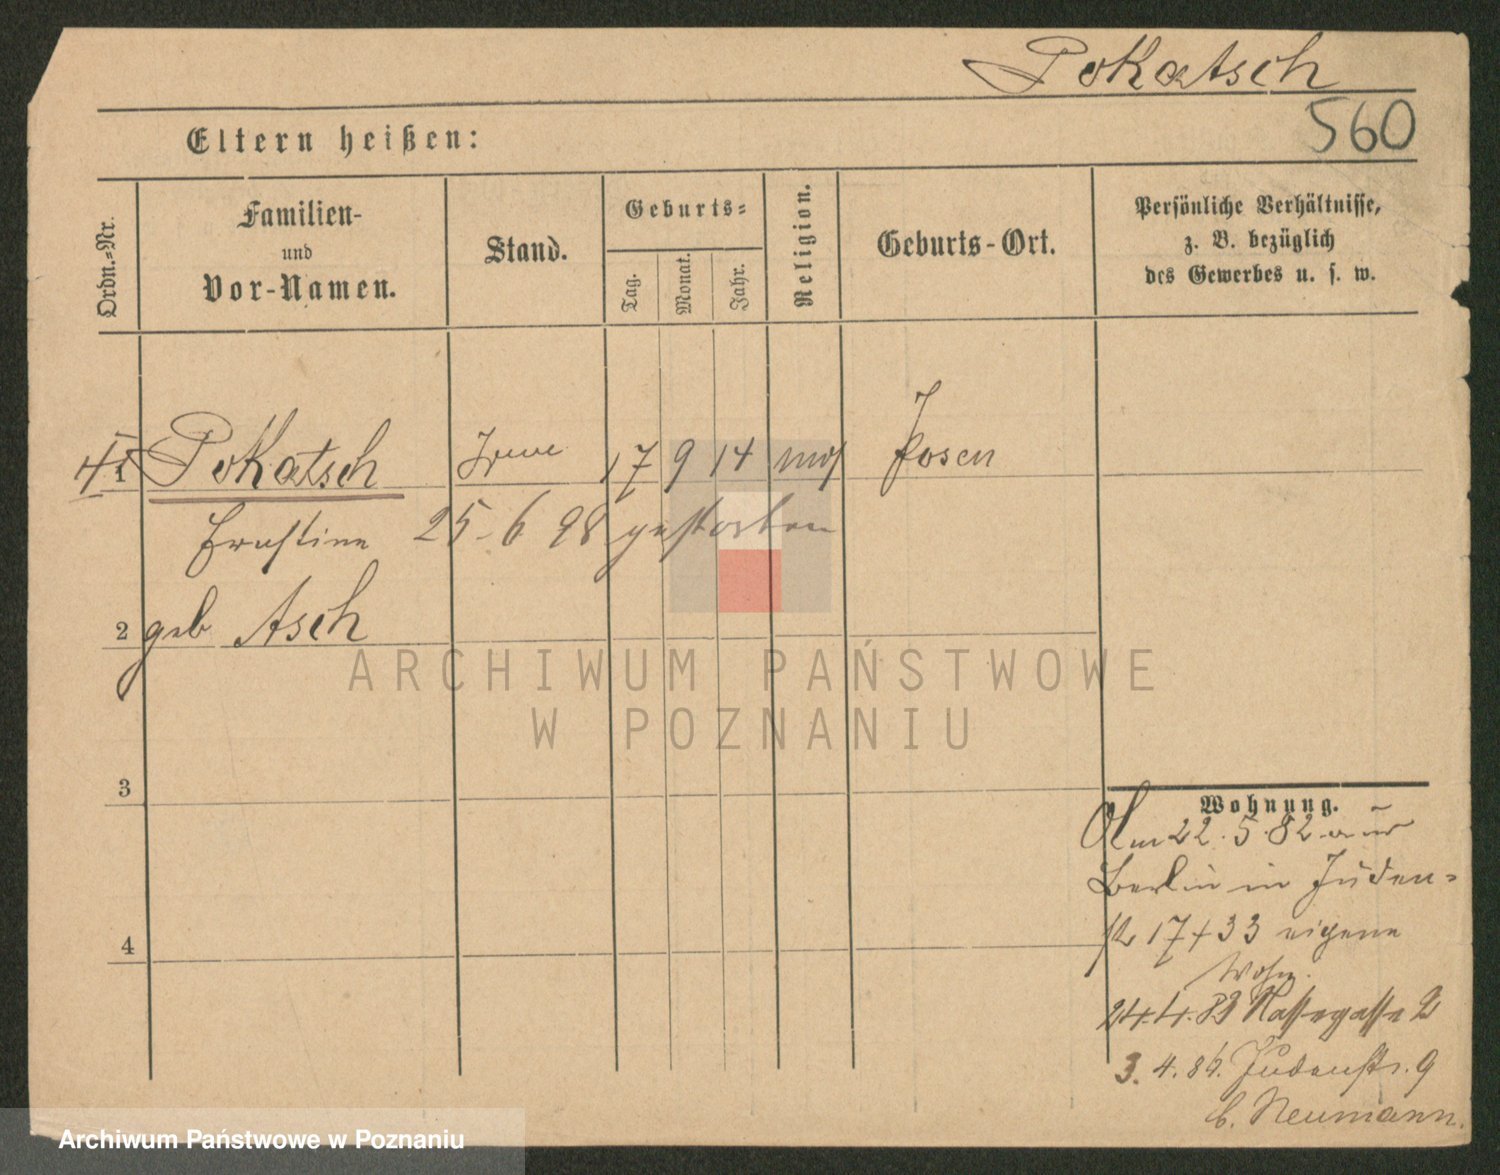 Pokatsch
560
Eltern heißen:
Ordn.-Nr.
Familien-
und
Vor-Namen.
Stand.
Geburts-
Tag.
Monat.
Jahr.
Religion.
Geburts-Ort.
Persönliche Verhältnisse,
z. B. bezüglich
des Gewerbes u. s. w.
1 Pokatsch 17 9 14 mos Posen
Ernstine 25-6 98 gestorben
2 geb Asch
ARCHIWUM PAŃSTWOWE
W POZNANIU
3
Wohnung.
22.5.82 aus
Berlin in Juden=
str 17/33 eigene
Wohn.
4
24.4.83 Nassegasse 2
3.4.86. Judenstr. 9
b. Neumann.
Archiwum Państwowe w Poznaniu